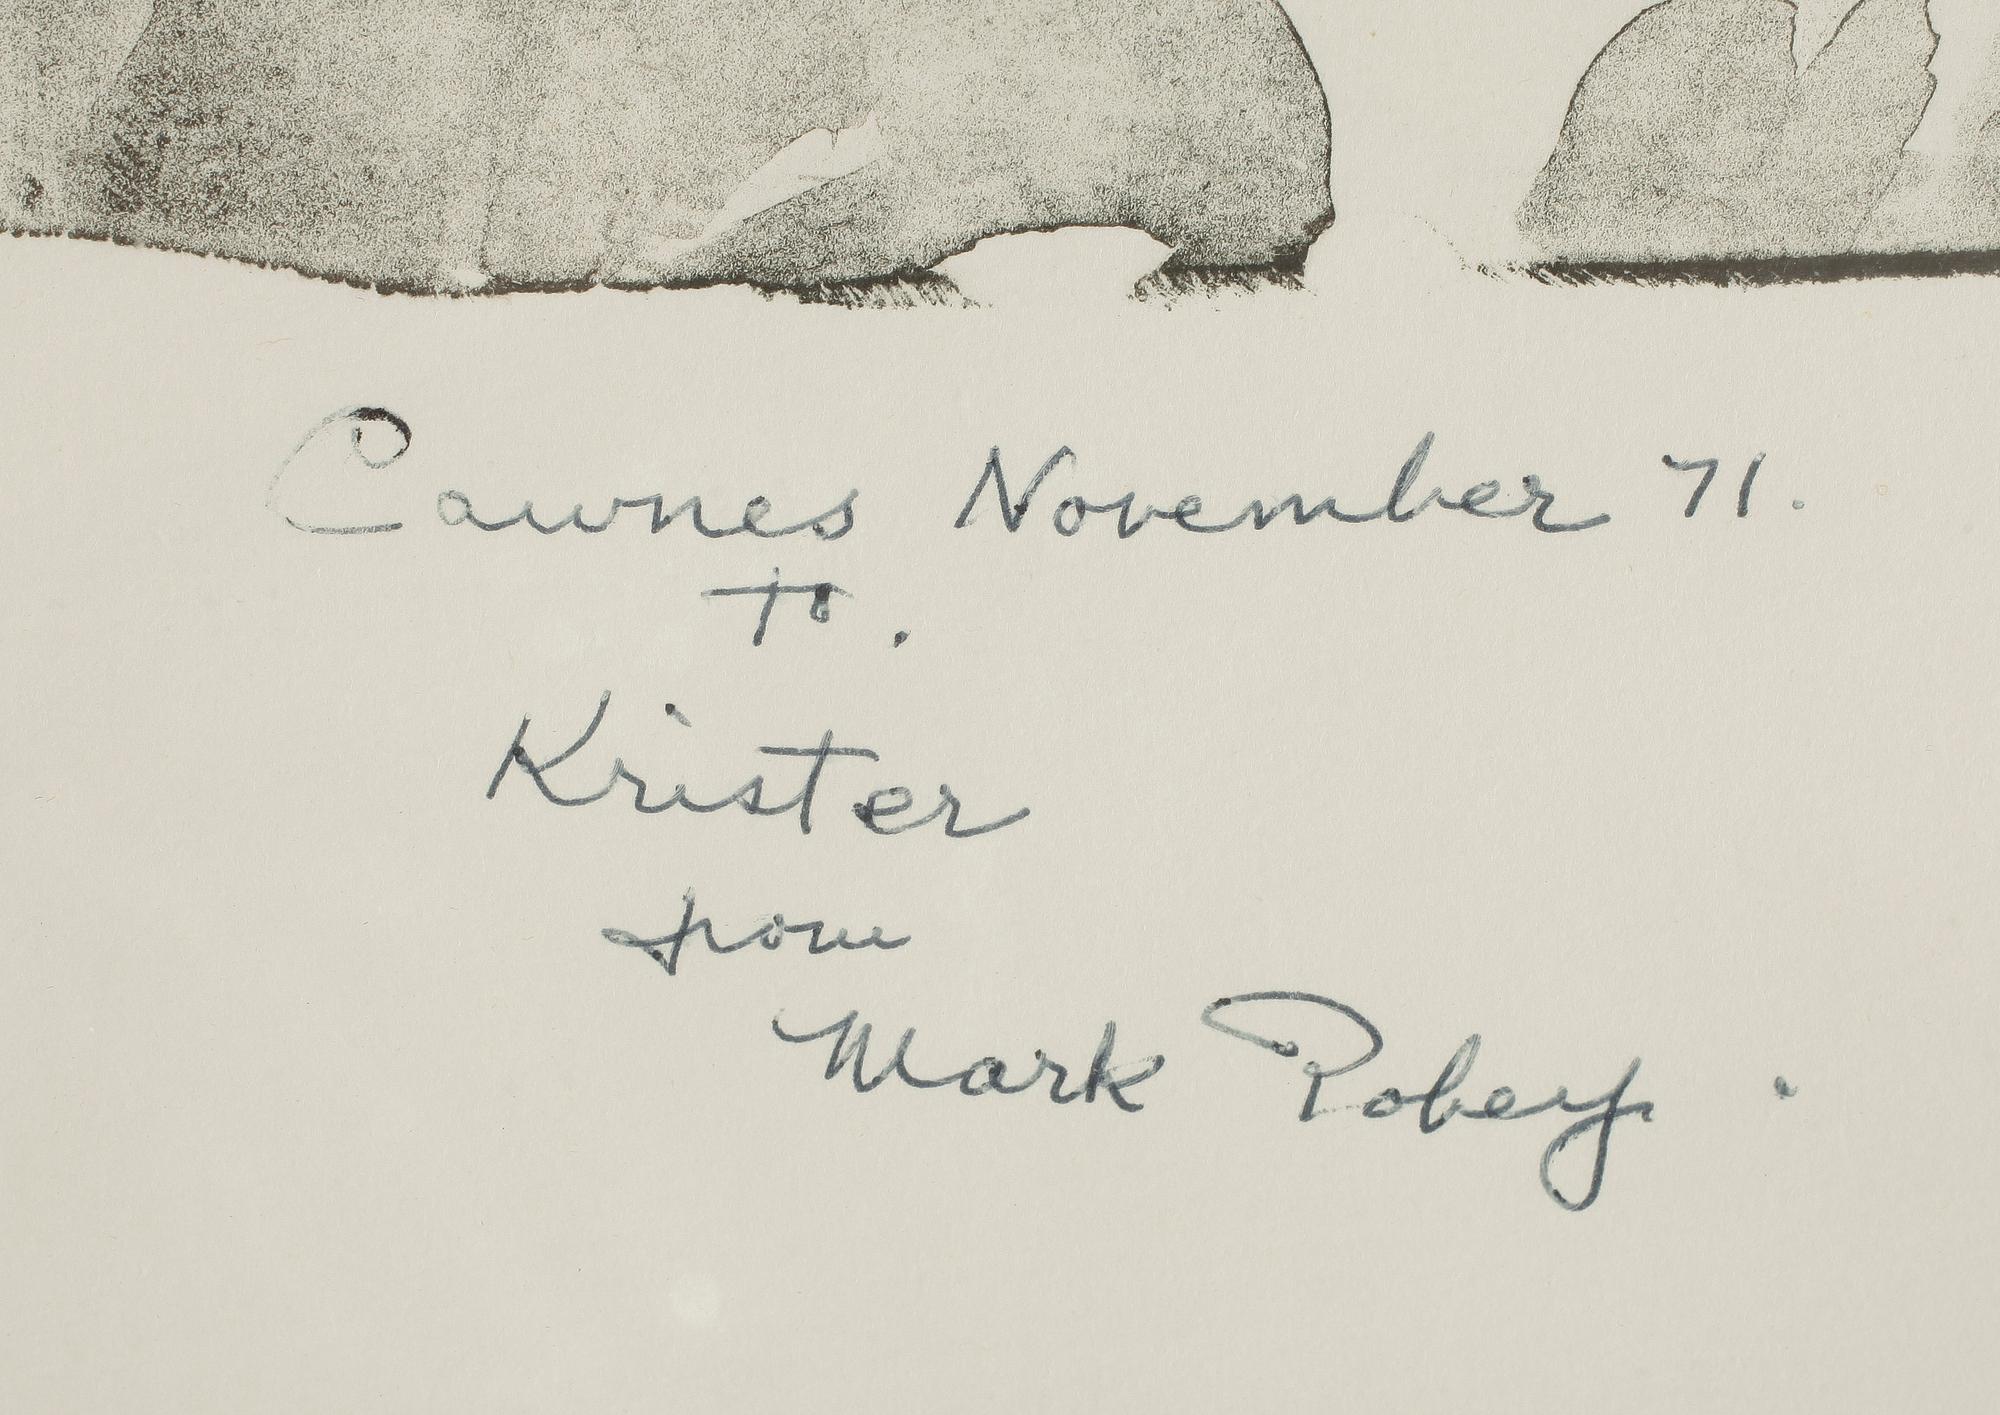 Cawnes November 71.
to.
Krister
from
Mark Tobey.